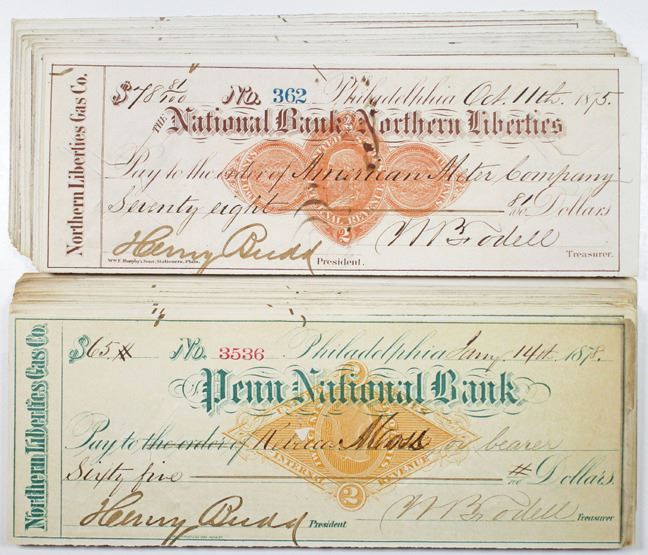 Northern Liberties Gas Co.
$78 81/100 No. 362 Philadelphia Oct. 11th. 1875.
THE National Bank Northern Liberties
Pay to the order of American Meter Company
Seventy eight 81/00 Dollars
Henry Budd President. W Brodell Treasurer.
Wm F. Murphy's Sons, Stationers, Phila.
Northern Liberties Gas Co.
$65 No. 3536 Philadelphia Jany 14th. 1878.
Penn National Bank
Pay to the order of Moss or bearer
Sixty five Dollars.
Henry Budd President W Brodell Treasurer